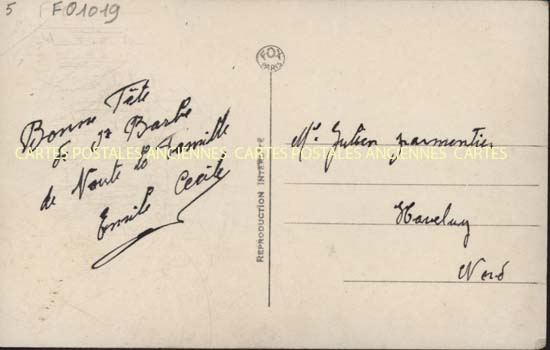 5 FO1019
FOX
PARIS
Bonne Fête
de Ste Barbe
de Toute la Famille
Emile Cecile
CARTES POSTALES ANCIENNES CARTES POSTALES ANCIENNES
REPRODUCTION INTERDITE
Mr. Julien parmentier
Haveluy
Nord